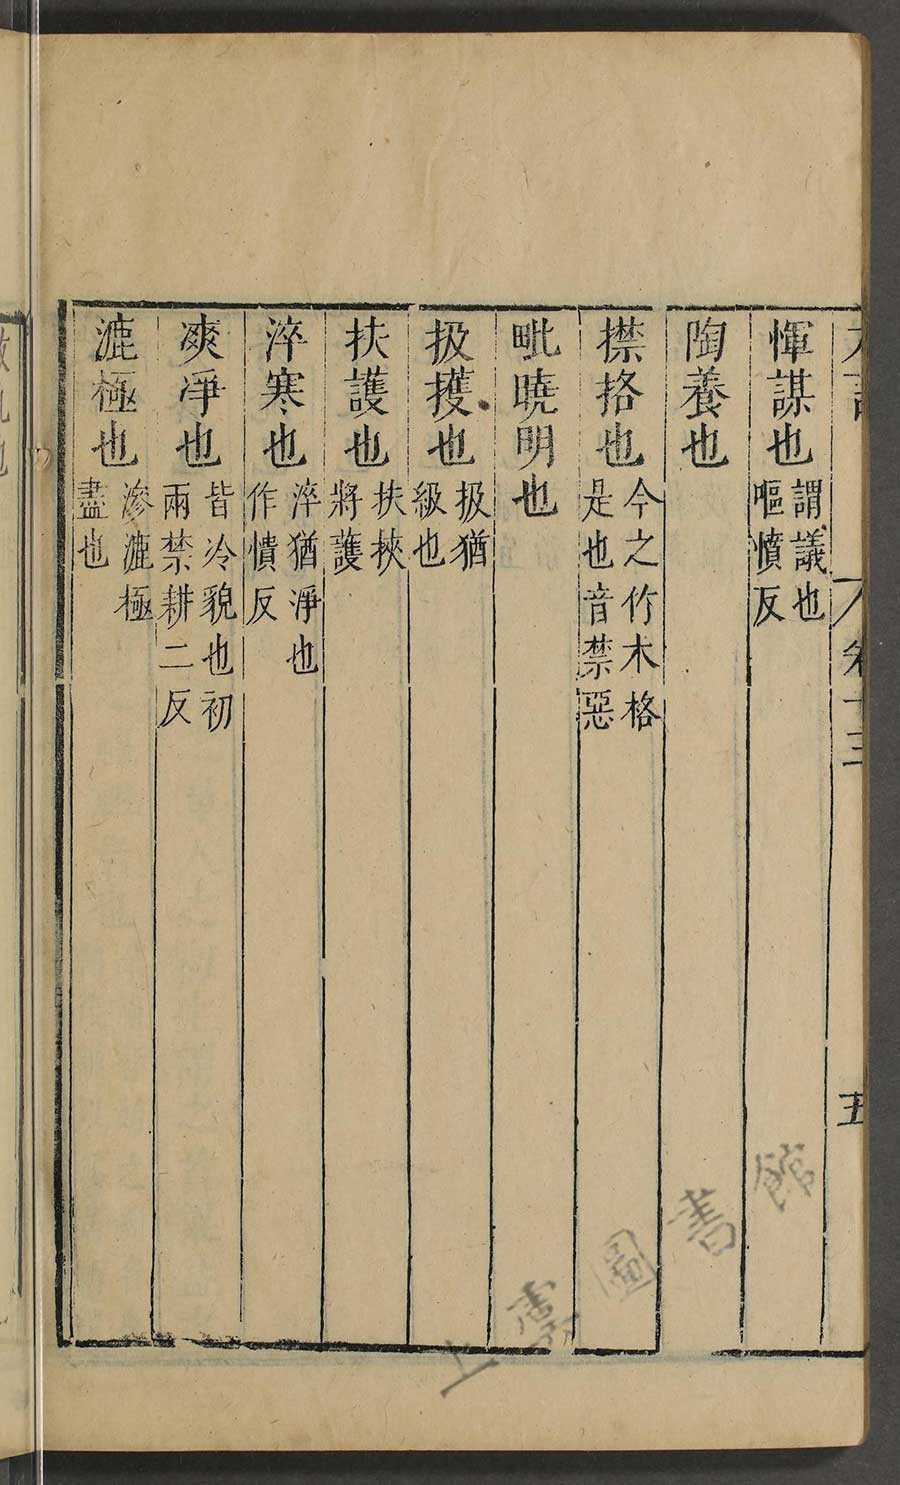 卷十三
五
惲謀也謂議也嘔憤反
陶養也
㯲挌也今之竹木格是也音禁惡
毗曉明也
扱擭也扱猶級也
扶護也扶挾將護
淬寒也淬猶淨也作憒反
凄凈也皆冷貌也初兩禁耕二反
漉極也滲漉極盡也
上海圖書館